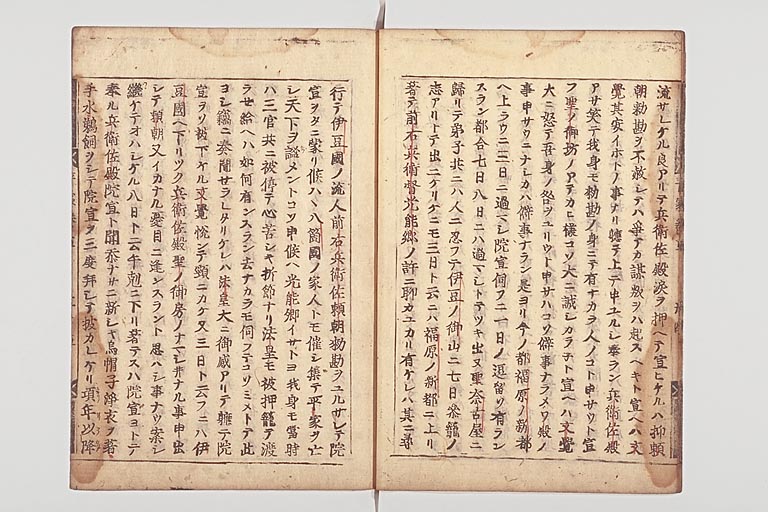 流サレケル良アリテ兵衛佐殿涙ヲ押ヘテ宣ヒケルハ抑頼
朝勅勘ヲ不赦シテハ争アカ謀叛ヲハ起スヘキト宣ヘハ文
覺其安イホトノ事ナリ聴テ上テ申ユルシ奉ラン兵衛佐殿
アサ笑テ我身モ勅勘ノ身ニテ有ナカラ人ノコト申サウト宣
フ聖ノ御坊ノアテカヒ様コソ大ニ誠シカラチト宣ヘハ文覺
大ニ怒テ吾身ノ咎ヲユリウト申サハコソ僻事ナラメワ殿ノ
事申サウニナシカハ僻事ナラン是ヨリ今ノ都福原ノ新都
ヘ上ラウニ三日ニ過マシ院宣伺フニ一日ノ逗留ソ有ラン
スラン都合七日八日ニハ過マシトテツキ出ヌ聖奈古屋ニ
歸リテ弟子共ニハ人ニ忍フテ伊豆ノ御山ニ七日参籠ノ
志アリトテ出ニケリケニモ三日ト云ニハ福原ノ新都ニ上リ
著テ前右兵衛督光能郷ノ許ニ聊カユカリ有ケレハ其ニ尋
行テ伊豆國ノ流人前右兵衛佐頼朝勅勘ヲユルサレテ院
宣ヲタニ蒙リ候ハヽ八箇國ノ家人トモ催シ集テ平家ヲ亡
シ天下ヲ謐メントコソ申候ヘ光能卿イサトヨ我身モ當時
ハ三官共ニ被停テ心苦シキ折節ナリ法皇モ被押籠テ渡
ラせ給ヘハ如何有ンスラン去ナカラモ伺フテコソミメトテ此
ヨシ竊ニ奏聞せラレタリケレハ法皇大ニ御感アリテ軈テ院
宣ヲソ被下ケル文覺悦ンテ頸ニカケ又三日ト云フニハ伊
豆國ヘ下リツク兵衛佐殿聖ノ御房ノナマシ井ナル事申出
シテ頼朝又イカナル憂目ニ逢ンスラント思ハシ事ナツ案シ
継ケテオハシケル八日ト云午剋ニ下リ著テスハ院宣ヨトテ
奉ル兵衛佐殿院宣ト聞忝ナサニ新シキ烏帽子浄衣ヲ著
手水鵜飼ヲシテ院宣ヲ三度拜シテ披カレケリ項年以降